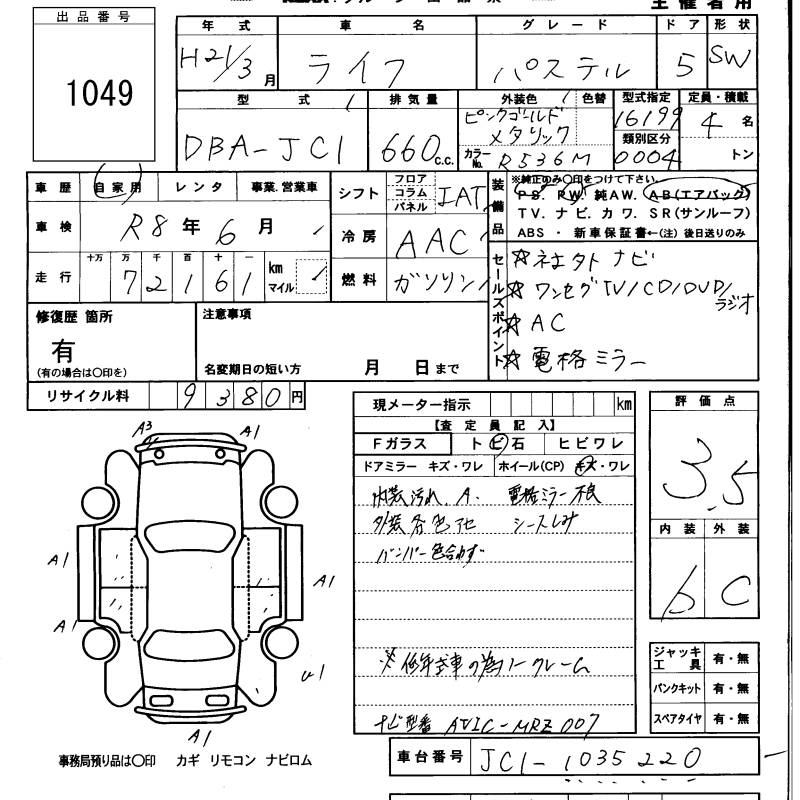 主催者用
出品番号
1049
年式 車名 グレード ドア 形状
H21/3月 ライフ パステル 5 SW
型式 排気量 外装色 色替 型式指定 定員・積載
DBA-JC1 660 c.c. ピンクゴールド メタリック 16199 4名
カラーNo. R536M 類別区分 0004 トン
車歴 自家用 レンタ 事業.営業車
車検 R8年6月
走行 十万 万 千 百 十 一 km マイル
72161
シフト フロア コラム パネル IAT
冷房 AAC
燃料 ガソリン
装備品
※純正のみ〇印をつけて下さい.
PS. RW. 純AW. AB(エアバック)
TV. ナビ. カワ. SR(サンルーフ)
ABS ・ 新車保証書←(注) 後日送りのみ
セールスポイント
☆ ナビ
☆ ワンセグTV/CD/DVD/ラジオ
☆ AC
☆ 電格ミラー
修復歴 箇所
有
(有の場合は〇印を)
注意事項
名変期日の短い方 月 日まで
リサイクル料 9380円
現メーター指示 km
【査定員記入】
Fガラス トビ石 ヒビワレ
ドアミラー キズ・ワレ ホイール(CP) キズ・ワレ
内装汚れ A. 電格ミラー不良
外装 色アセ シートしみ
バンパー色合わず
※低年式車の為ノークレーム
ナビ型番 AVIC-MRZ007
評価点
3.5
内装 外装
b C
ジャッキ 工具 有・無
パンクキット 有・無
スペアタイヤ 有・無
A3 A1
A1
A1
A1
U1
A1
事務局預り品は〇印 カギ リモコン ナビロム
車台番号 JC1-1035220